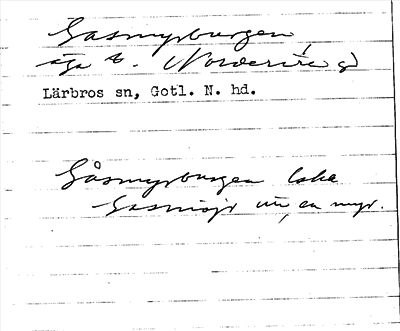 Gasmyrburgen,
äga t. Norderire gd
Lärbros sn, Gotl. N. hd.
Gåsmyrburgen loka
Gasmöjr um, en myr.